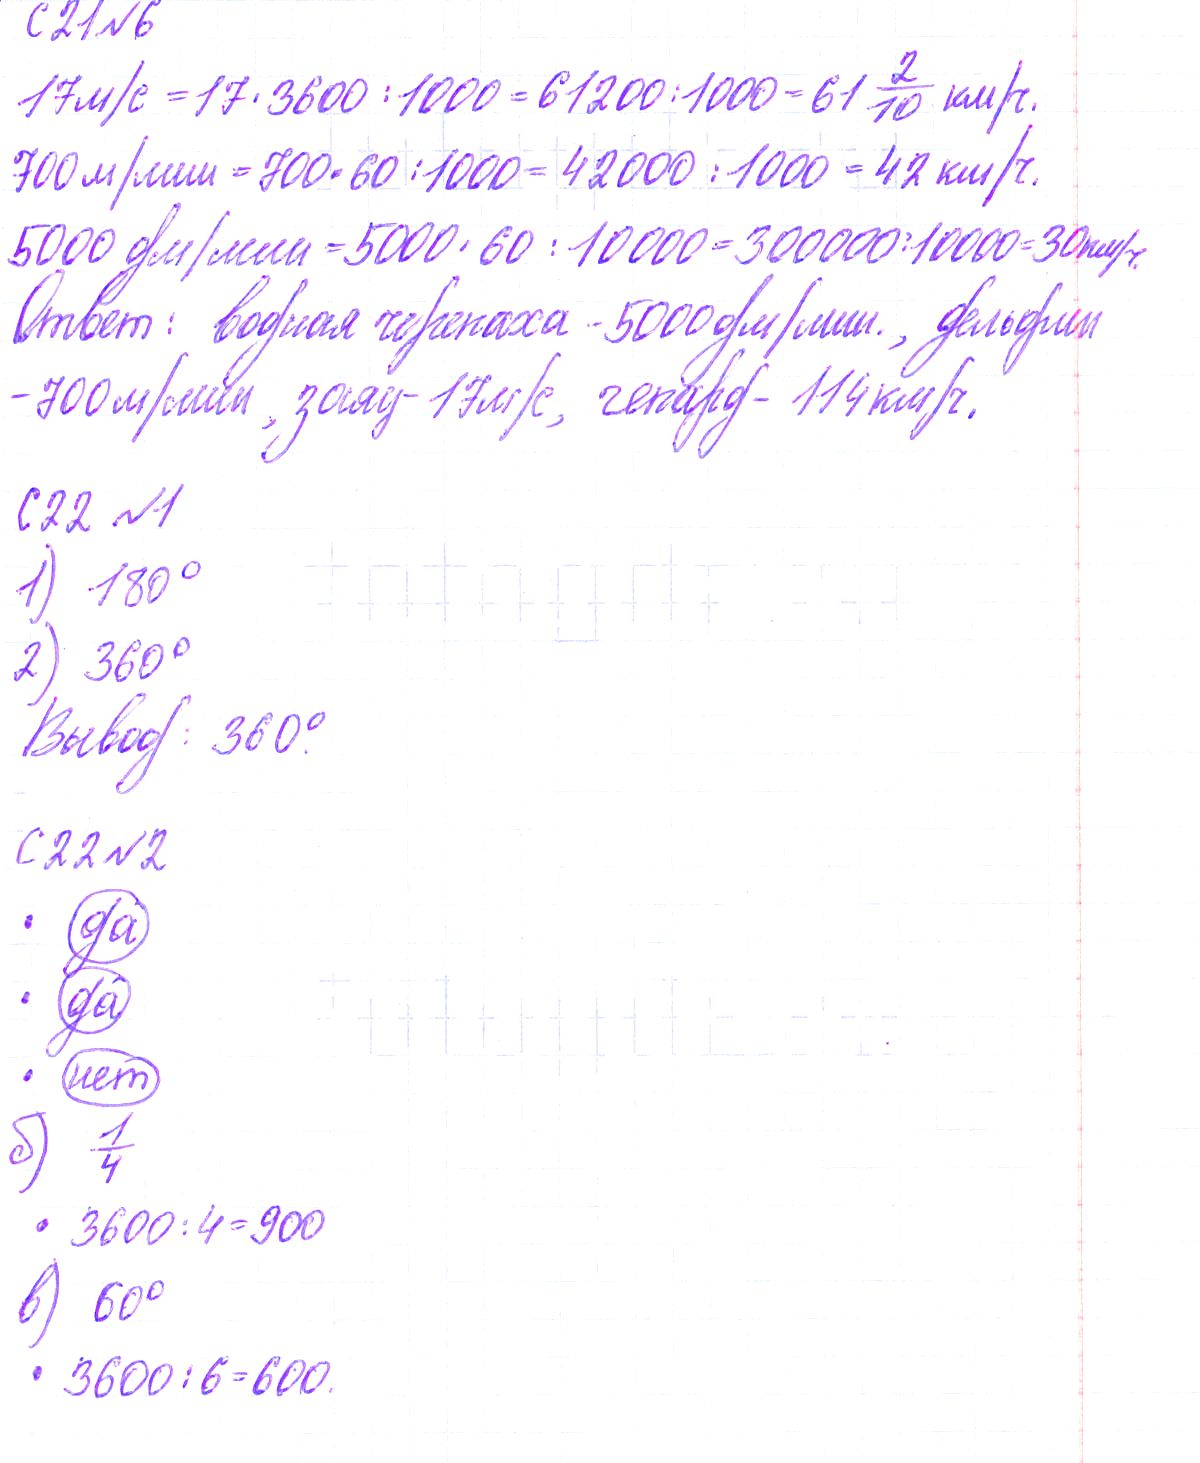 С21№6
17м/с = 17·3600:1000 = 61200:1000 = 61 2/10 км/ч.
700 м/мин = 700·60:1000 = 42000:1000 = 42 км/ч.
5000 дм/мин = 5000·60:10000 = 300000:10000 = 30км/ч.
Ответ: водная черепаха - 5000 дм/мин., дельфин
- 700 м/мин, заяц - 17м/с, гепард - 114 км/ч.
С22 №1
1) 180°
2) 360°
Вывод: 360°.
С22№2
• да
• да
• нет
б) 1/4
• 3600:4=900
в) 60°
• 3600:6=600.